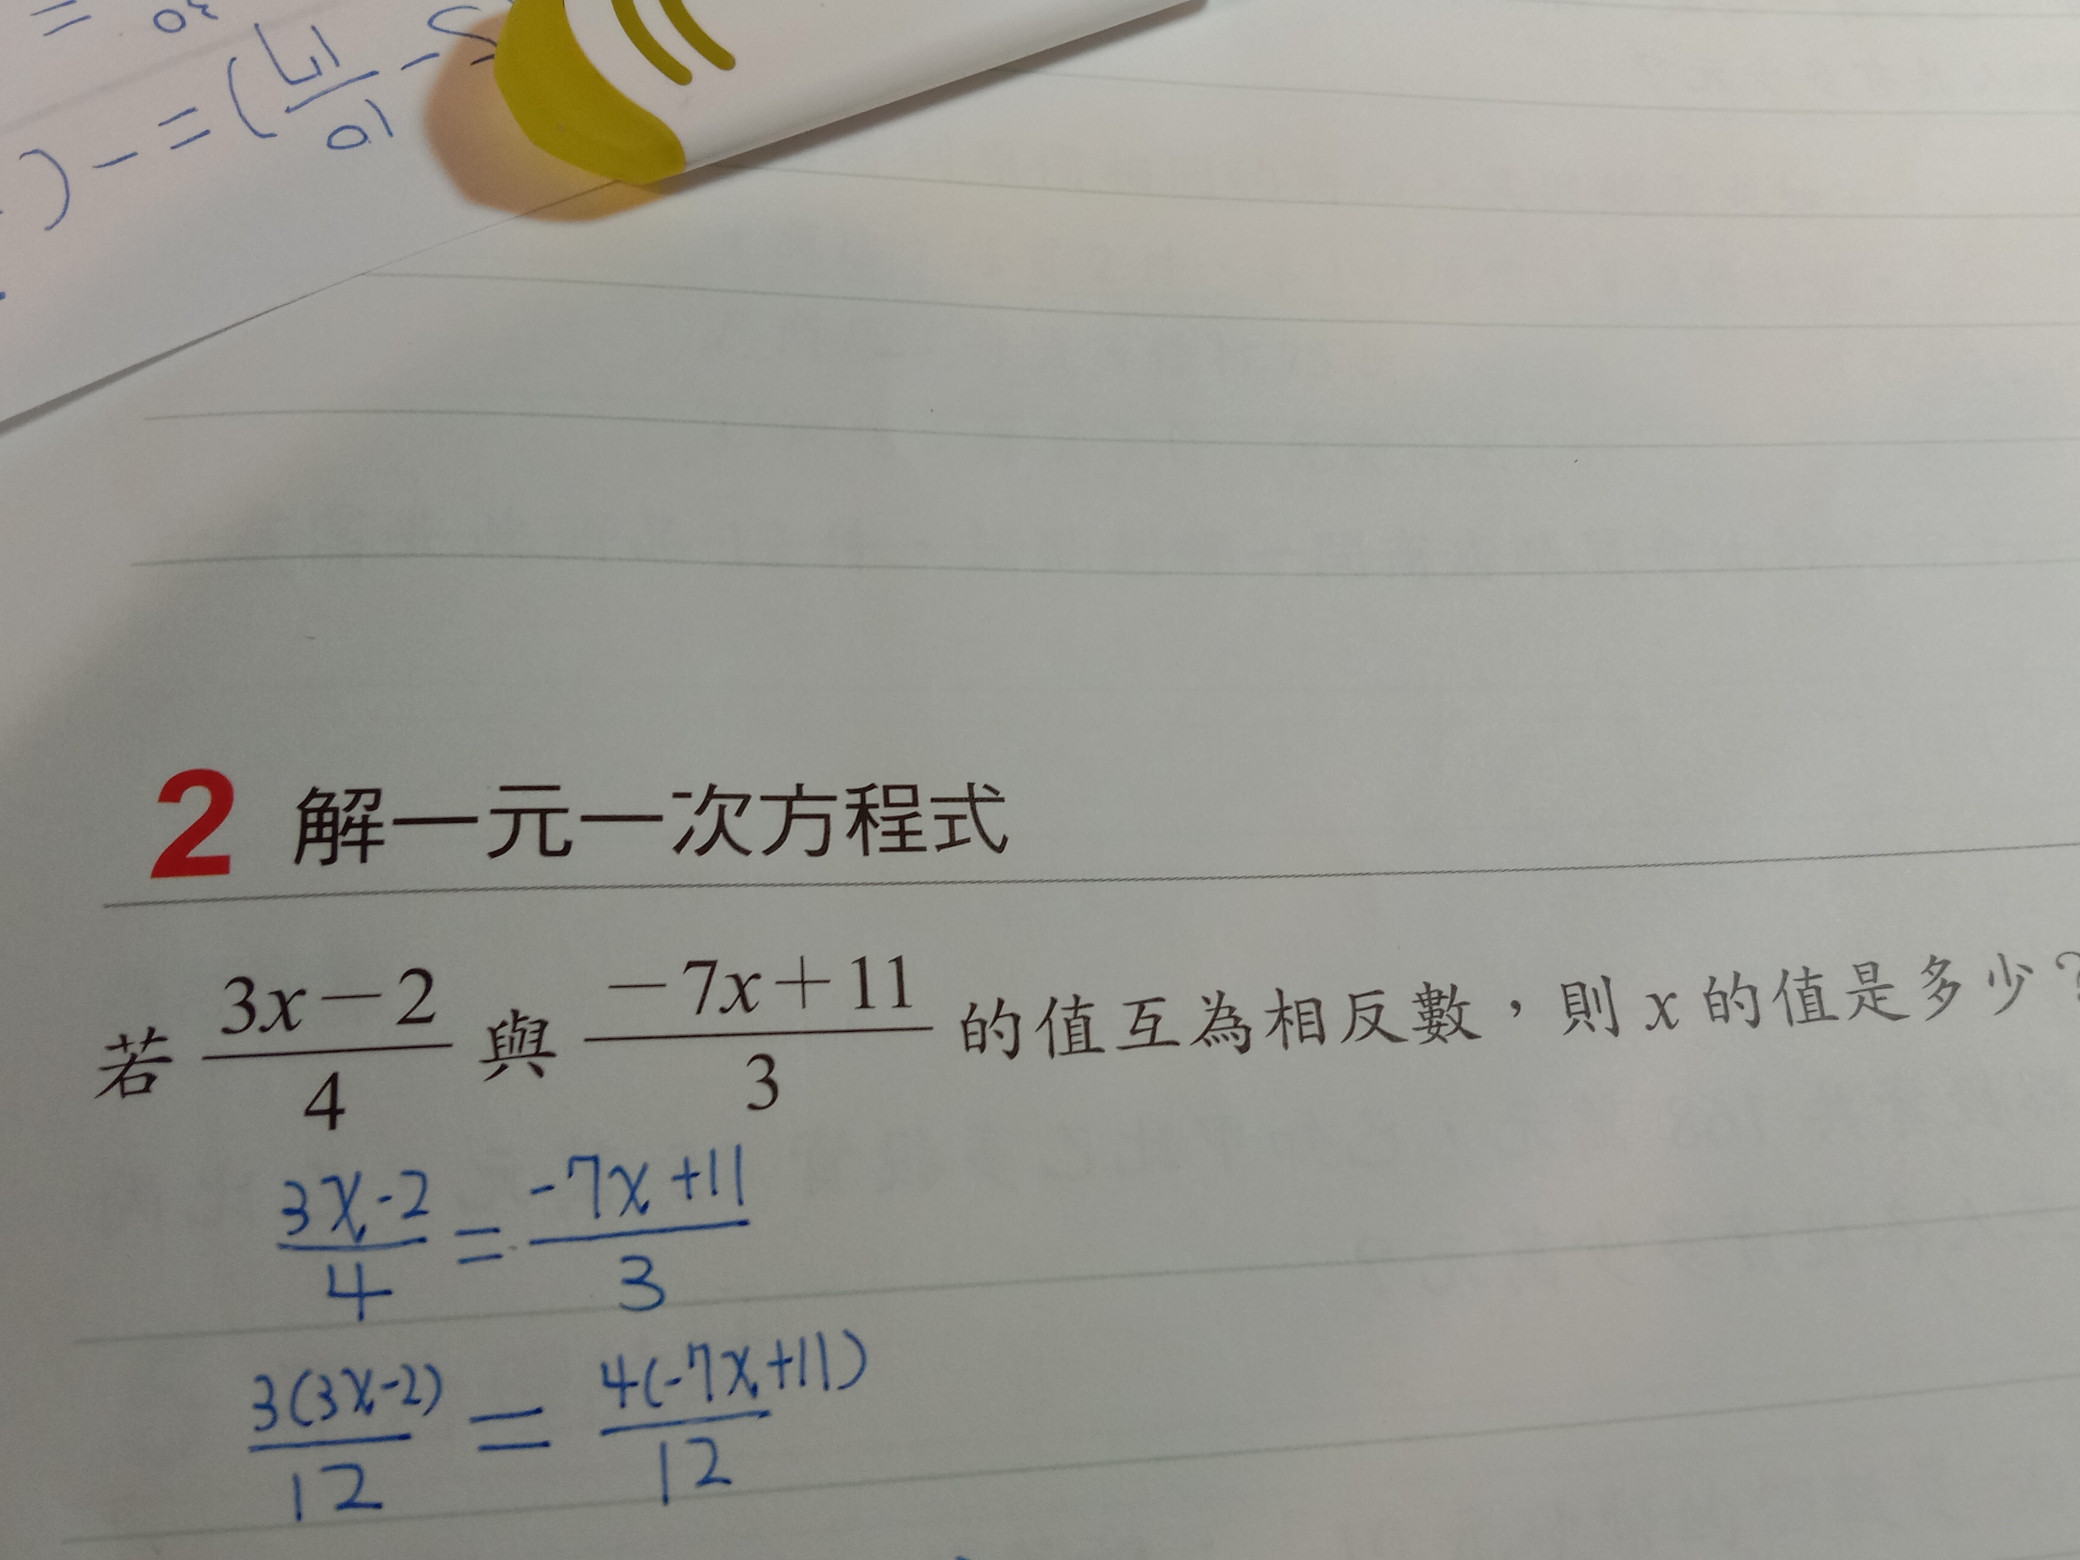 2 解一元一次方程式
若 (3x－2)/4 與 (－7x＋11)/3 的值互為相反數，則 x 的值是多少？
(3x-2)/4 = (-7x+11)/3
3(3x-2)/12 = 4(-7x+11)/12